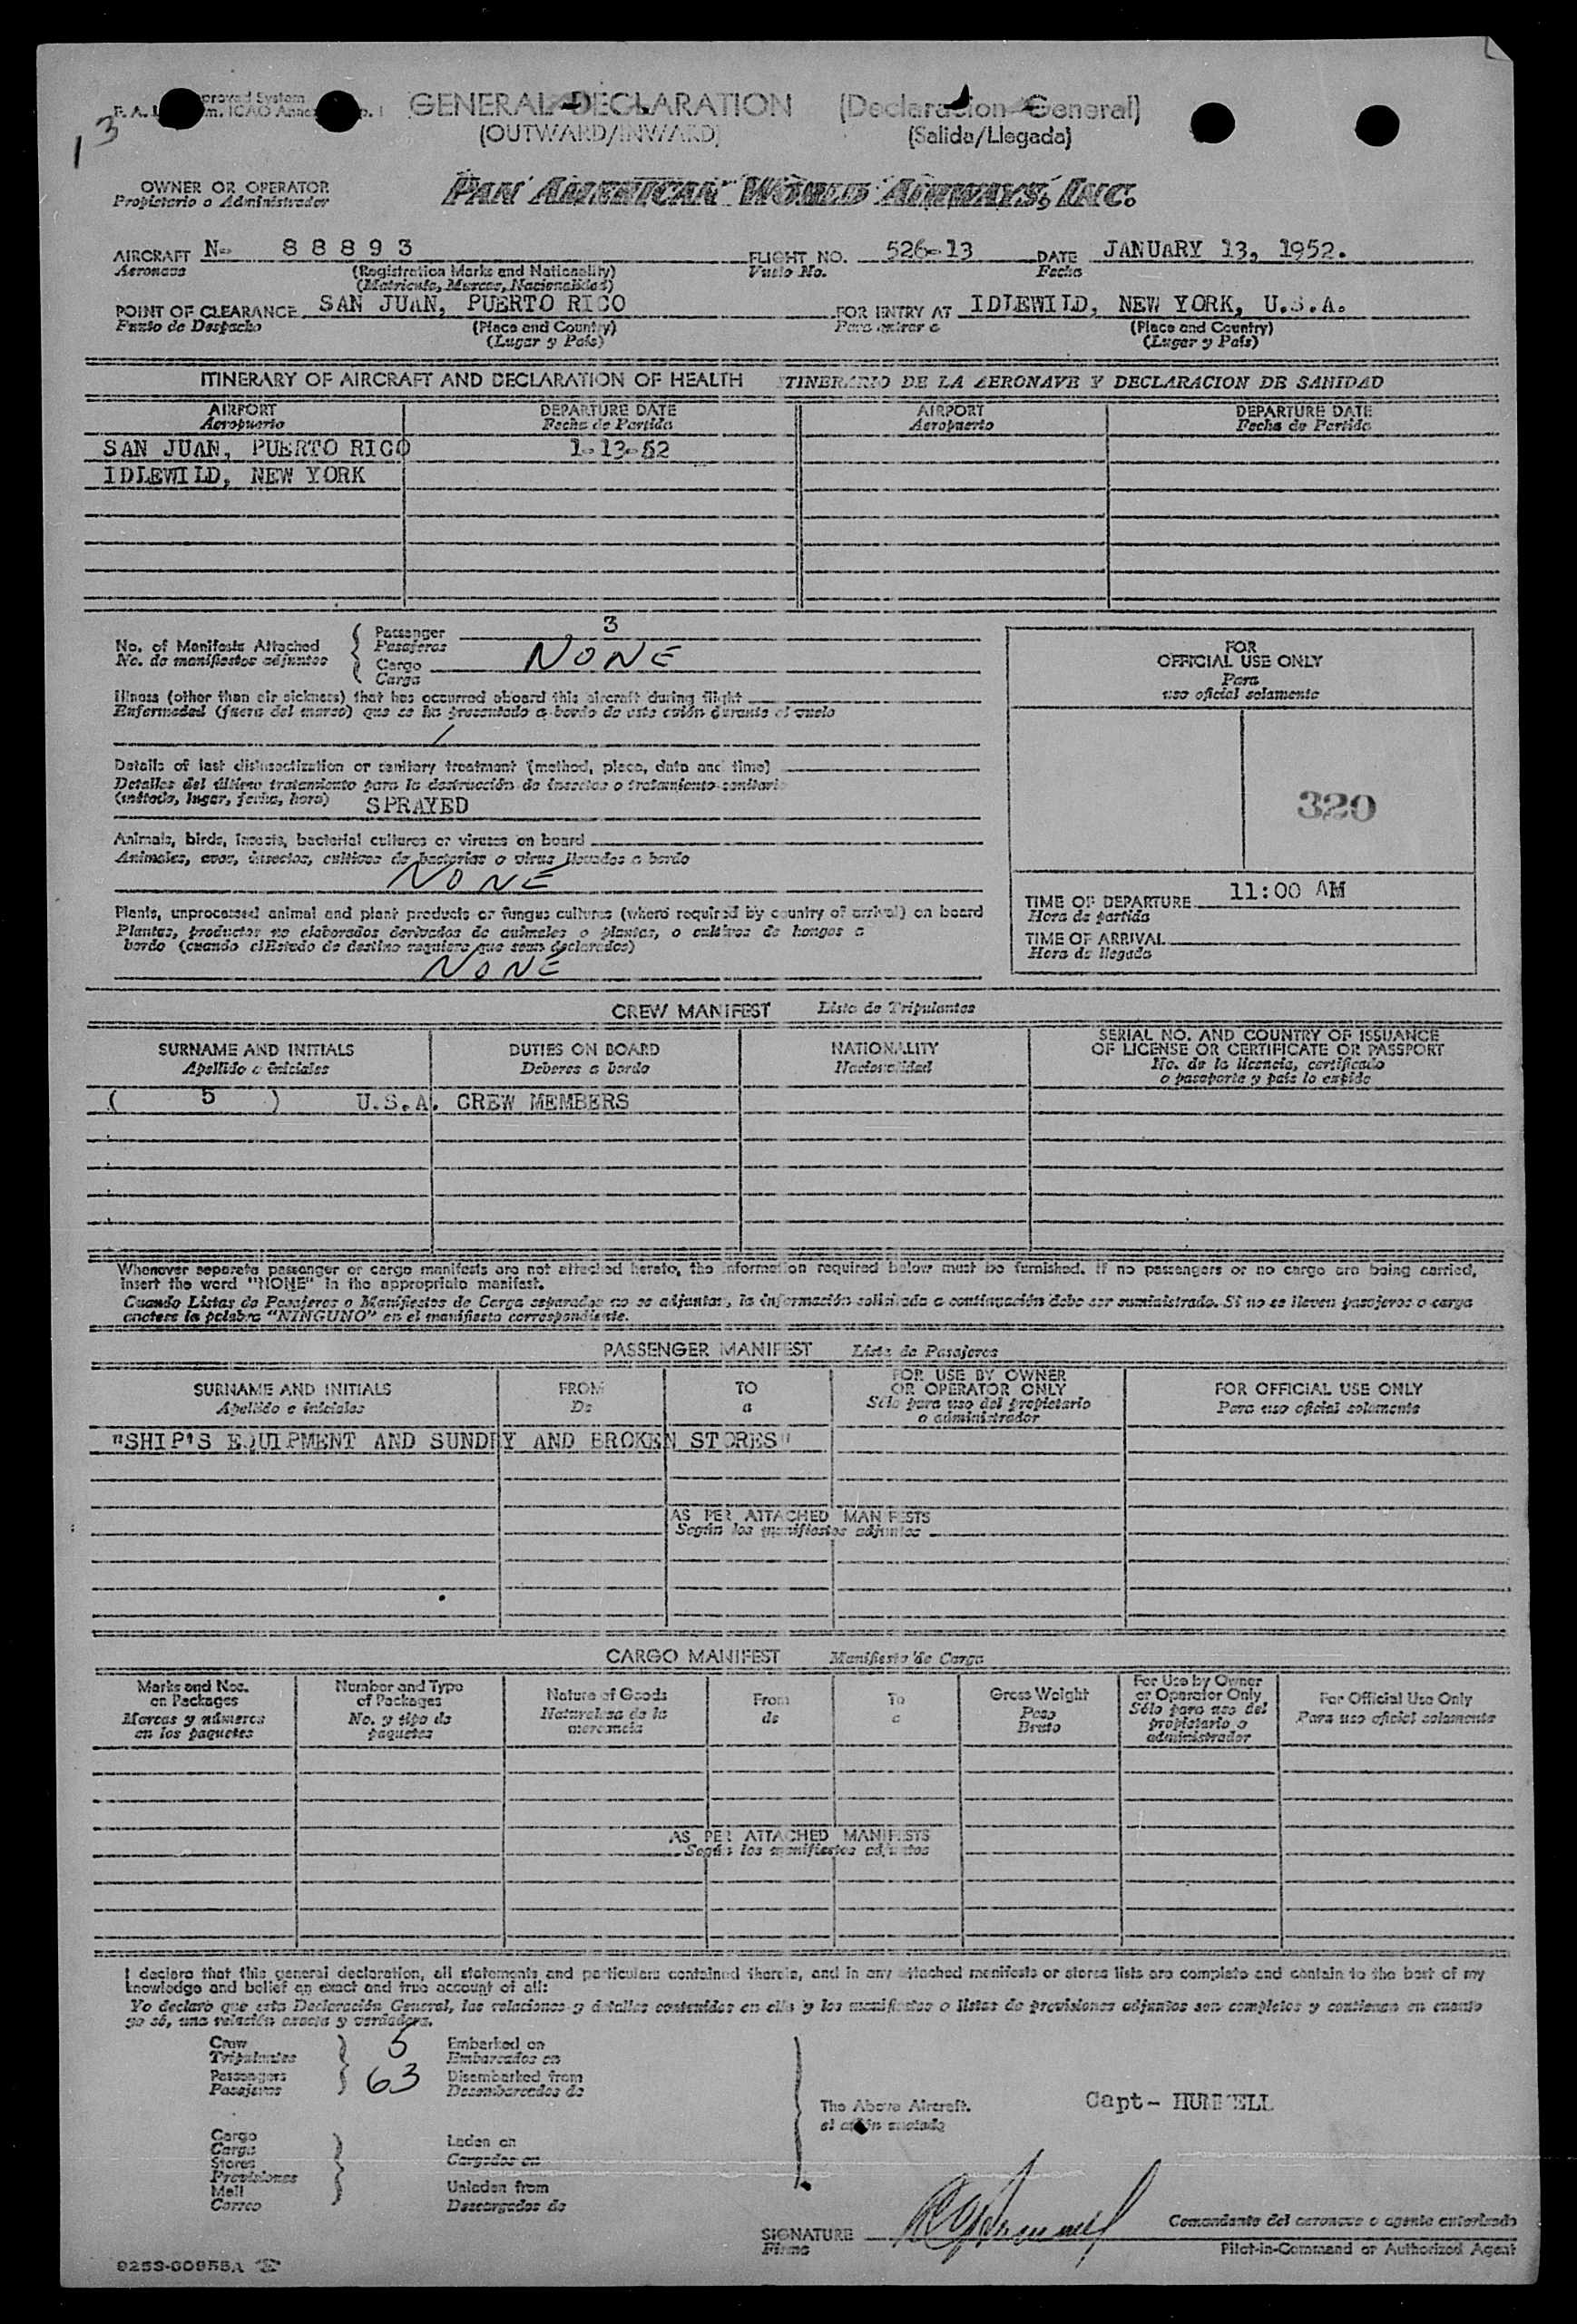 GENERAL DECLARATION (Declaracion General)
(OUTWARD/INWARD) (Salida/Llegada)
13
OWNER OR OPERATOR
Propietario o Administrador
PAN AMERICAN WORLD AIRWAYS, INC.
AIRCRAFT N- 88893 FLIGHT NO. 526-13 DATE JANUARY 13, 1952.
Aeronave (Registration Marks and Nationality) Vuelo No. Fecha
(Matricula, Marcas, Nacionalidad)
POINT OF CLEARANCE SAN JUAN, PUERTO RICO FOR ENTRY AT IDLEWILD, NEW YORK, U.S.A.
Punto de Despacho (Place and Country) Para entrar a (Place and Country)
(Lugar y País) (Lugar y País)
ITINERARY OF AIRCRAFT AND DECLARATION OF HEALTH ITINERARIO DE LA AERONAVE Y DECLARACION DE SANIDAD
AIRPORT DEPARTURE DATE AIRPORT DEPARTURE DATE
Aeropuerto Fecha de Partida Aeropuerto Fecha de Partida
SAN JUAN, PUERTO RICO 1-13-52
IDLEWILD, NEW YORK
No. of Manifests Attached
No. de manifiestos adjuntos
Passenger 3
Pasajeros
Cargo NONE
Carga
Illness (other than air sickness) that has occurred aboard this aircraft during flight
Enfermedad (fuera del mareo) que se ha presentado a bordo de este avión durante el vuelo
Details of last disinsectization or sanitary treatment (method, place, date and time)
Detalles del último tratamiento para la destrucción de insectos o tratamiento sanitario
(método, lugar, fecha, hora) SPRAYED
Animals, birds, insects, bacterial cultures or viruses on board
Animales, aves, insectos, cultivos de bacterias o virus llevados a bordo
NONE
Plants, unprocessed animal and plant products or fungus cultures (where required by country of arrival) on board
Plantas, productos no elaborados derivados de animales o plantas, o cultivos de hongos a
bordo (cuando el Estado de destino requiera que sean declarados)
NONE
FOR
OFFICIAL USE ONLY
Para
uso oficial solamente
320
TIME OF DEPARTURE 11:00 AM
Hora de partida
TIME OF ARRIVAL
Hora de llegada
CREW MANIFEST Lista de Tripulantes
SURNAME AND INITIALS DUTIES ON BOARD NATIONALITY SERIAL NO. AND COUNTRY OF ISSUANCE
OF LICENSE OR CERTIFICATE OR PASSPORT
Apellido e iniciales Deberes a bordo Nacionalidad No. de la licencia, certificado
o pasaporte y país lo expide
( 5 ) U.S.A. CREW MEMBERS
Whenever separate passenger or cargo manifests are not attached hereto, the information required below must be furnished. If no passengers or no cargo are being carried,
insert the word "NONE" in the appropriate manifest.
Cuando Listas de Pasajeros o Manifiestos de Carga separados no se adjuntan, la información solicitada a continuación debe ser suministrada. Si no se llevan pasajeros o carga
anótese la palabra "NINGUNO" en el manifiesto correspondiente.
PASSENGER MANIFEST Lista de Pasajeros
SURNAME AND INITIALS FROM TO FOR USE BY OWNER
OR OPERATOR ONLY FOR OFFICIAL USE ONLY
Apellido e iniciales De a Sólo para uso del propietario
o administrador Para uso oficial solamente
"SHIP'S EQUIPMENT AND SUNDRY AND BROKEN STORES"
AS PER ATTACHED MANIFESTS
Según los manifiestos adjuntos
CARGO MANIFEST Manifiesto de Carga
Marks and Nos.
on Packages
Marcas y números
en los paquetes
Number and Type
of Packages
No. y tipo de
paquetes
Nature of Goods
Naturaleza de la
mercancía
From
de
To
a
Gross Weight
Peso
Bruto
For Use by Owner
or Operator Only
Sólo para uso del
propietario o
administrador
For Official Use Only
Para uso oficial solamente
AS PER ATTACHED MANIFESTS
Según los manifiestos adjuntos
I declare that this general declaration, all statements and particulars contained therein, and in any attached manifests or stores lists are complete and contain to the best of my
knowledge and belief an exact and true account of all:
Yo declaro que esta Declaración General, las relaciones y detalles contenidos en ella y los manifiestos o listas de provisiones adjuntos son completos y contienen en cuanto
yo sé, una relación exacta y verdadera.
Crew 5 Embarked on
Tripulantes Embarcados en
Passengers 63 Disembarked from
Pasajeros Desembarcados de
The Above Aircraft.
el avión anotado
Capt-
Cargo
Carga
Stores
Provisiones
Mail
Correo
Laden on
Cargados en
Unladen from
Descargados de
SIGNATURE
Firma
Comandante del aeronave o agente autorizado
Pilot-in-Command or Authorized Agent
9253-60955A